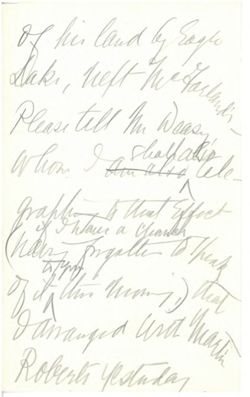 of his land by Eagle
Lake, next McFarland's
Please tell Mr Deasy
whom I shall also tele-
graph to that effect
(if I have a chance
having forgotten to speak
to you
of it this morning,) that
I arranged with Martin
Roberts yesterday